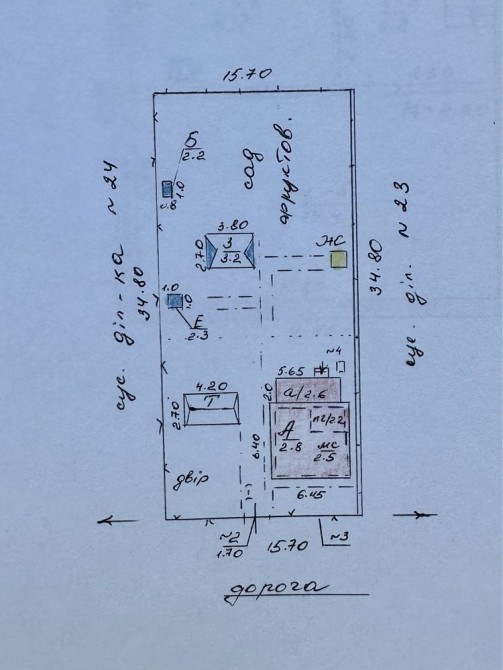 15.70
Б
2.2
1.0
0.8
сад
фруктов.
сус. діл-ка № 24
34.80
3.80
2.70
3
3.2
ЖС
34.80
сус. діл. № 23
1.0
1.0
Е
2.3
№4
5.65
2.0
а/2.6
4.20
2.70
Т
А
2.8
пг/2.2
мс
2.5
6.40
двір
6.45
№2
1.70
15.70
№3
дорога